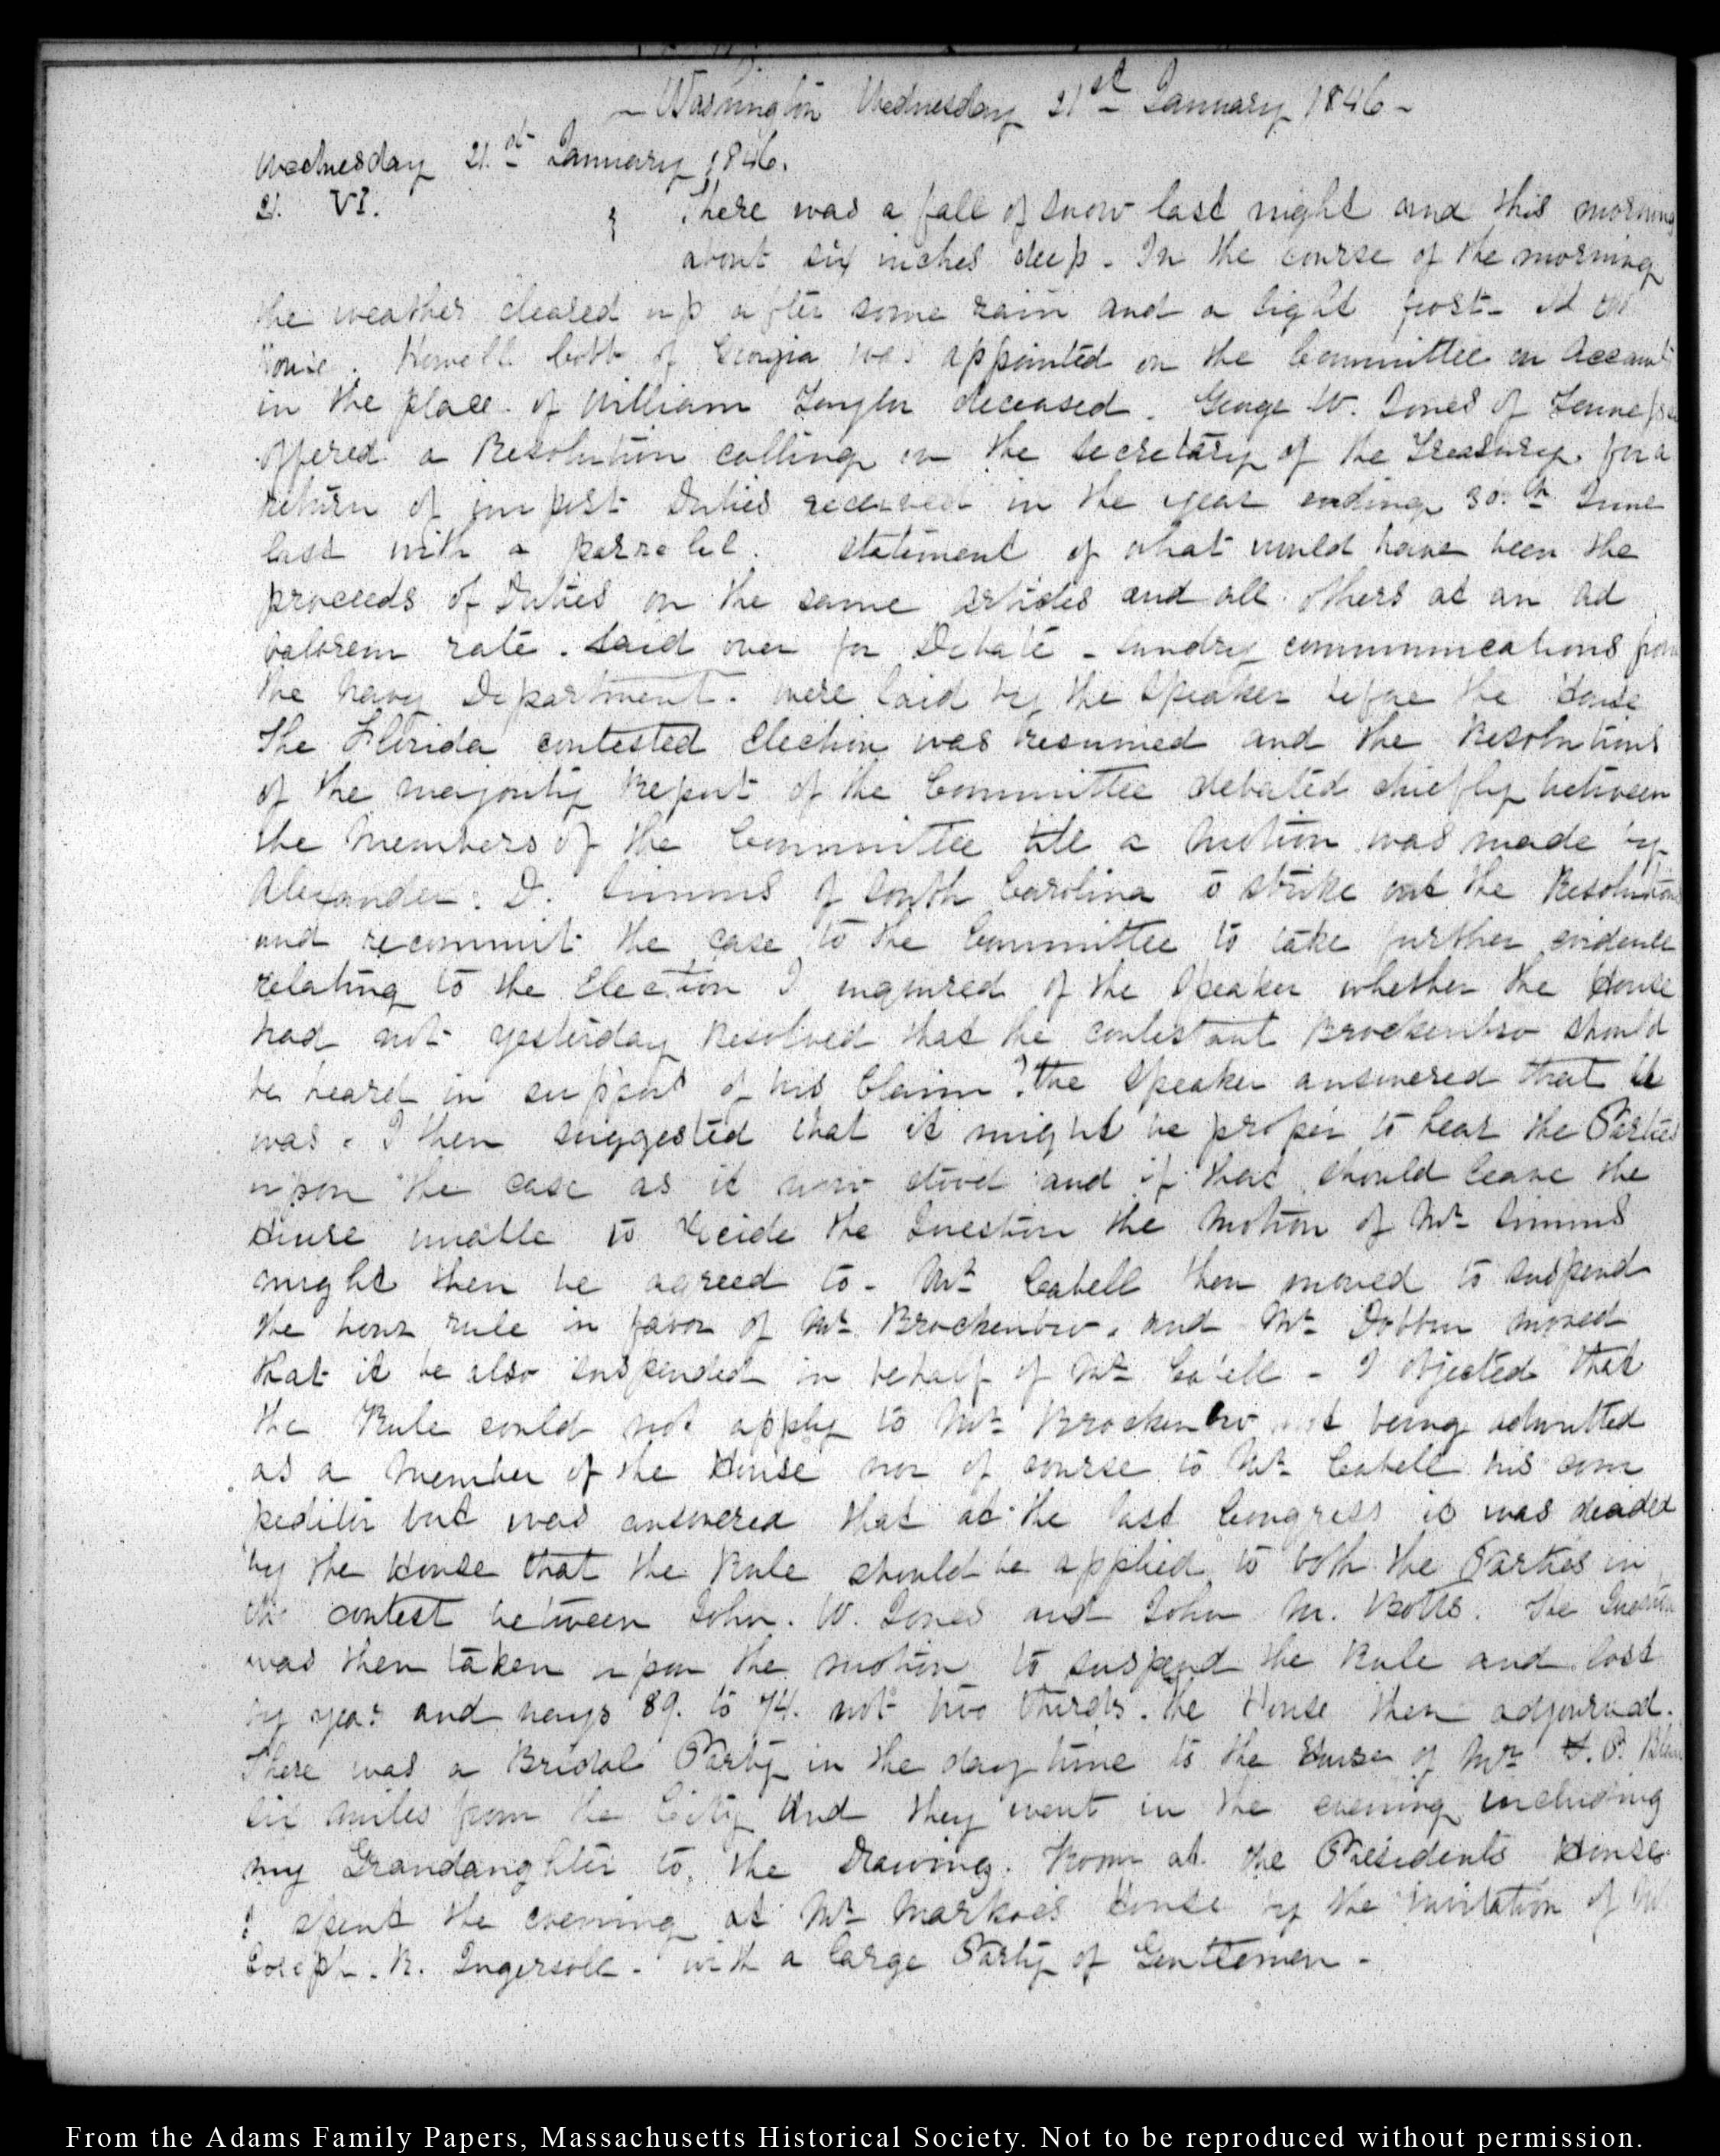 — Washington Wednesday 21st January 1846 —
Wednesday 21.st January 1846.
21. VI. There was a fall of snow last night and this morning
about six inches deep. In the course of the morning
the weather cleared up after some rain and a light frost. At the
House. Howell Cobb of Georgia was appointed on the Committee on Accounts
in the place of William Taylor deceased. George W. Jones of Tennessee
offered a Resolution calling on the Secretary of the Treasury for a
return of impost Duties received in the year ending 30.th June
last with a parralel. statement of what would have been the
proceeds of Duties on the same articles and all others at an ad
valorem rate. Laid over for Debate – Sundry communications from
the Navy Department. were laid by the Speaker before the House
The Florida contested Election was resumed and the Resolutions
of the majority Report of the Committee debated chiefly between
the Members of the Committee till a Motion was made by
Alexander. D. Simms of South Carolina to strike out the Resolutions
and recommit the case to the Committee to take further evidence
relating to the Election I enquired of the Speaker whether the House
had not yesterday Resolved that the contestant Brockenbro should
be heard in support of his Claim? the Speaker answered that it
was. I then suggested that it might be proper to hear the Parties
upon the case as it now stood and if that should leave the
House unable to decide the Question the Motion of Mr Simms
might then be agreed to – Mr Cabell then moved to suspend
the hour rule in favor of Mr Brockenbro. and Mr Dobbin moved
that it be also suspended in behalf of Mr Cabell – I objected that
the Rule could not apply to Mr Brockenbro not being admitted
as a Member of the House nor of course to Mr Cabell his com
petitor but was answered that at the last Congress it was decided
by the House that the Rule should be applied to both the Parties in
the contest between John. W. Jones and John M. Botts. The Question
was then taken upon the motion to suspend the Rule and lost
by yeas and nays 89. to 74. not two thirds. the House then adjourned.
There was a Bridal Party in the day time to the House of Mr F. P. Blair
six miles from the City and they went in the evening including
my Grandaughter to the Drawing. Room at the Presidents House
I spent the evening at Mr Markoe's House by the invitation of Mr
Joseph. R. Ingersoll – with a large Party of Gentlemen –
From the Adams Family Papers, Massachusetts Historical Society. Not to be reproduced without permission.